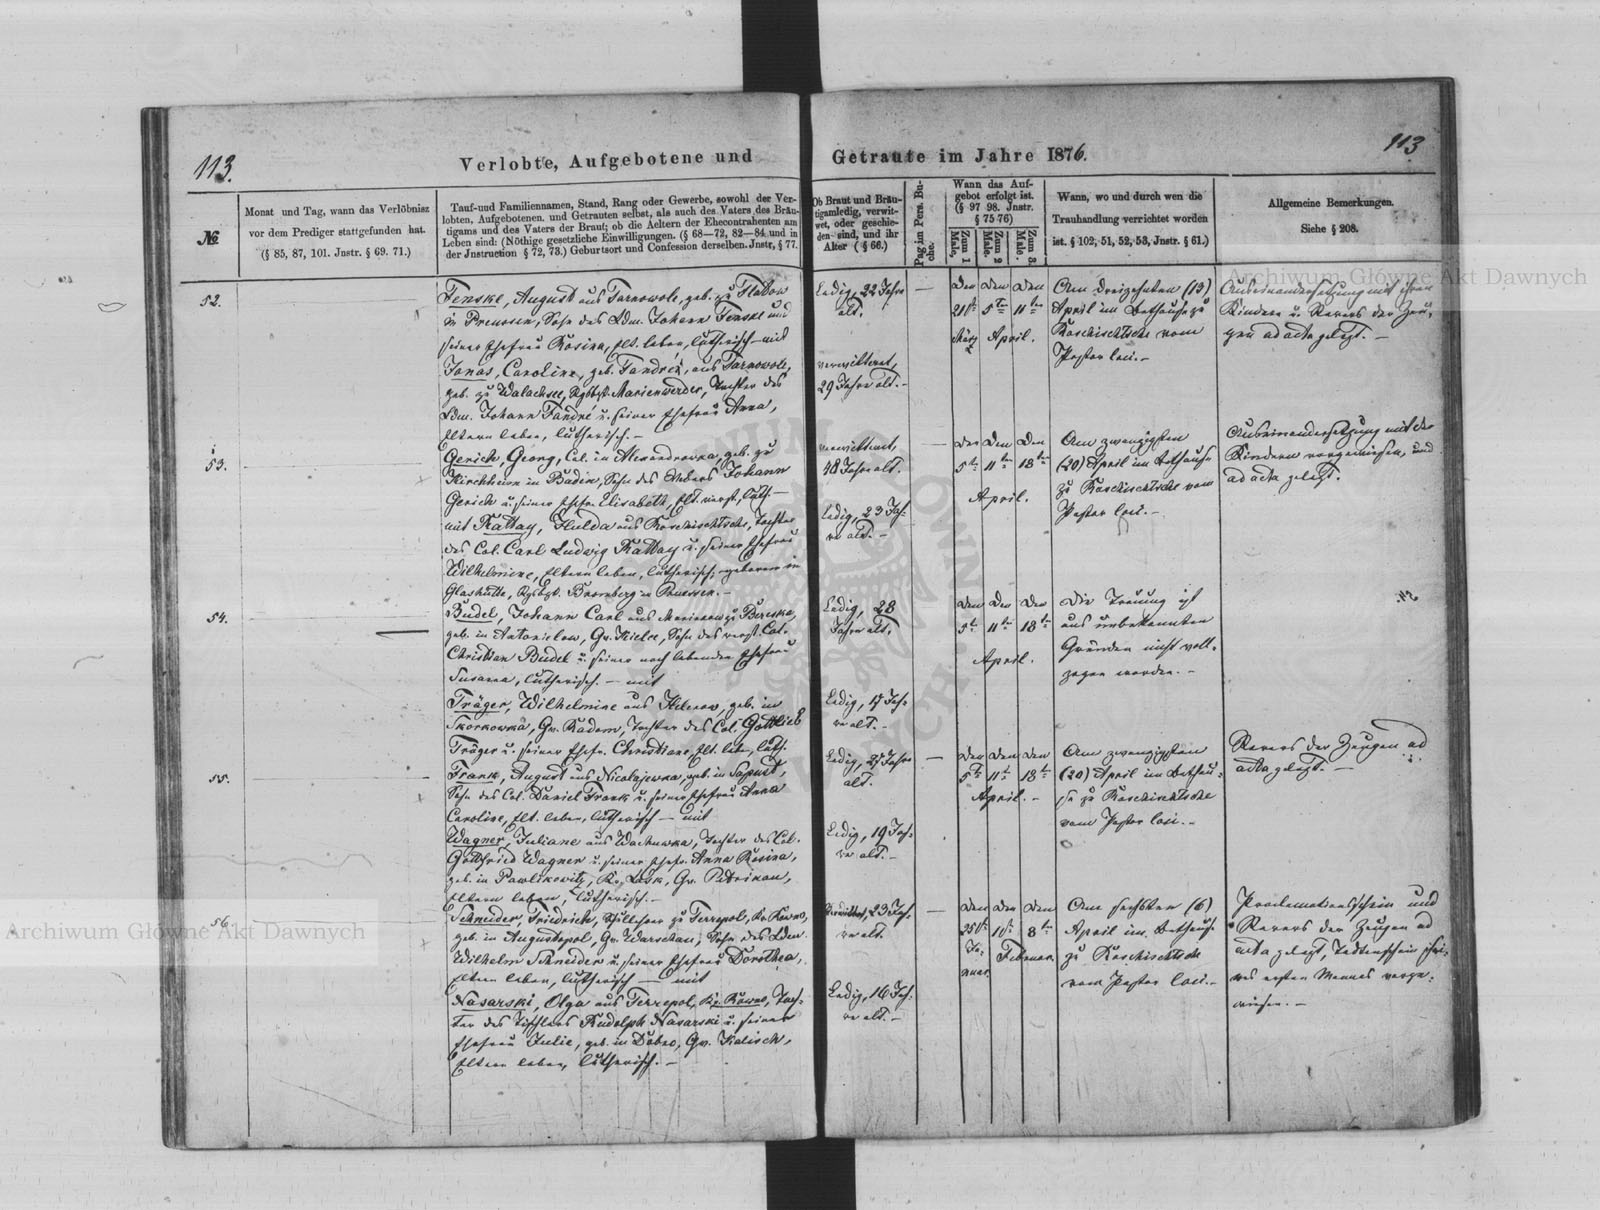 113.
Verlobte, Aufgebotene und
Getraute im Jahre 1876.
113
№
Monat und Tag, wann das Verlöbniss
vor dem Prediger stattgefunden hat.
(§ 85, 87, 101. Jnstr. § 69. 71.)
Tauf-und Familiennamen, Stand, Rang oder Gewerbe, sowohl der Ver-
lobten, Aufgebotenen. und Getrauten selbst, als auch des Vaters des Bräu-
tigams und des Vaters der Braut; ob die Aeltern der Ehecontrahenten am
Leben sind: (Nöthige gesetzliche Einwilligungen. (§ 68—72, 82—84 und in
der Jnstruction § 72, 73.) Geburtsort und Confession derselben. Jnstr, § 77.
Ob Braut und Bräu-
tigam ledig, verwit-
wet, oder geschie-
den sind, und ihr
Alter (§ 66.)
Pag. im Pers. Bu-
che.
Wann das Auf-
gebot erfolgt ist.
(§ 97 98. Jnstr.
§ 75 76)
Zum 1
Male.
Zum 2
Male.
Zum 3.
Male.
Wann, wo und durch wen die
Trauhandlung verrichtet worden
ist. § 102, 51, 52, 53, Jnstr. § 61.)
Allgemeine Bemerkungen.
Siehe § 208.
52.
Fenske, August aus Tarnowole, geb. zu Flatow
in Preussen, Sohn des Ldm. Johann Fenske und
seiner Ehefrau Rosina, Elt. leben, lutherisch – mit
Jonas, Caroline, geb. Fandré, aus Tarnowole,
geb. zu Walachsee, Rgbzt. Marienwerder, Tochter des
Ldm. Johann Fandré u. seiner Ehefrau Anna,
Eltern leben, lutherisch. –
Ledig, 22 Jahre
alt.
verwittwet,
29 Jahre alt. –
den den den
21ten 5ten 11ten
März April.
Am dreizehnten (13)
April im Bethause zu
Roschischtsche vom
Pastor loci. –
Auseinandersetzung mit ihren
Kindern u. Revers der Zeu-
gen ad acta gelegt. –
53.
Gerich, Georg, Col. in Alexandrowka, geb. zu
Kirchheim in Baden, Sohn des Johann
Gerich u. seiner Ehefr. Elisabeth, Elt. verst., luth –
mit Rattay, Hulda aus Roschischtsche, Tochter
des Col. Carl Ludwig Rattay u. seiner Ehefrau
Wilhelmine, Eltern leben, lutherisch, geboren in
Glashütte, Rgbzt. Bromberg in Preussen. –
verwittwet,
48 Jahre alt.
Ledig, 23 Jah-
re alt. –
den den den
5ten 11ten 18ten
April.
Am zwanzigsten
(20) April im Bethause
zu Roschischtsche vom
Pastor loci. –
Auseinandersetzung mit den
Kindern vorgewiesen, und
ad acta gelegt.
54.
Budel, Johann Carl aus
geb. in Antonielow, Gv. Kielce, Sohn des verst. Col.
Christian Budel u. seiner noch lebenden Ehefrau
Susanna, lutherisch. – mit
Träger, Wilhelmine aus geb. in
Skorkowka, Gv. Radom, Tochter des Col. Gottlieb
Träger u. seiner Ehefr. Christiane, Elt. leb., luth.
Ledig, 28
Jahre alt.
Ledig, 17 Jah-
re alt. –
den den den
5ten 11ten 18ten
April.
Die Trauung ist
aus unbekannten
Gründen nicht voll-
zogen worden. –
55.
Frank, August aus Nicolajewka, geb. in
Sohn des Col. Daniel Frank u. seiner Ehefrau Anna
Caroline, Elt. leben, lutherisch – mit
Wagner, Juliane aus Tochter des Col.
Gottfried Wagner u. seiner Ehefr. Anna Rosina,
geb. in Pawlikowitz, Kr. Lask, Gv. Petrikau,
Eltern leben, lutherisch. –
Ledig, 27 Jahre
alt.
Ledig, 19 Jah-
re alt. –
den den den
5ten 11ten 18ten
April. –
Am zwanzigsten
(20) April im Bethau-
se zu Roschischtsche
vom Pastor loci. –
Revers der Zeugen ad
acta gelegt. –
56.
Schneider, Friedrich, zu Terrepol, Kr. Kowno,
geb. in Augustopol, Gv. Warschau, Sohn des Ldm.
Wilhelm Schneider u. seiner Ehefrau Dorothea,
Eltern leben, lutherisch – mit
Nasarski, Olga aus Terrepol, Kr. Rowno, Toch-
ter des Tischlers Rudolph Nasarski u. seiner
Ehefrau Julie, geb. in Dobro, Gv. Kalisch,
Eltern leben, lutherisch. –
23 Jah-
re alt.
Ledig, 16 Jah-
re alt. –
den den den
25ten
Ja- Februar.
nuar
Am sechsten (6)
April im Bethause
zu Roschischtsche
vom Pastor loci. –
Proclamationsschein und
Revers der Zeugen ad
acta gelegt, Todtenschein ih-
res ersten Mannes vorge-
wiesen. –
Archiwum Główne Akt Dawnych
Archiwum Główne Akt Dawnych